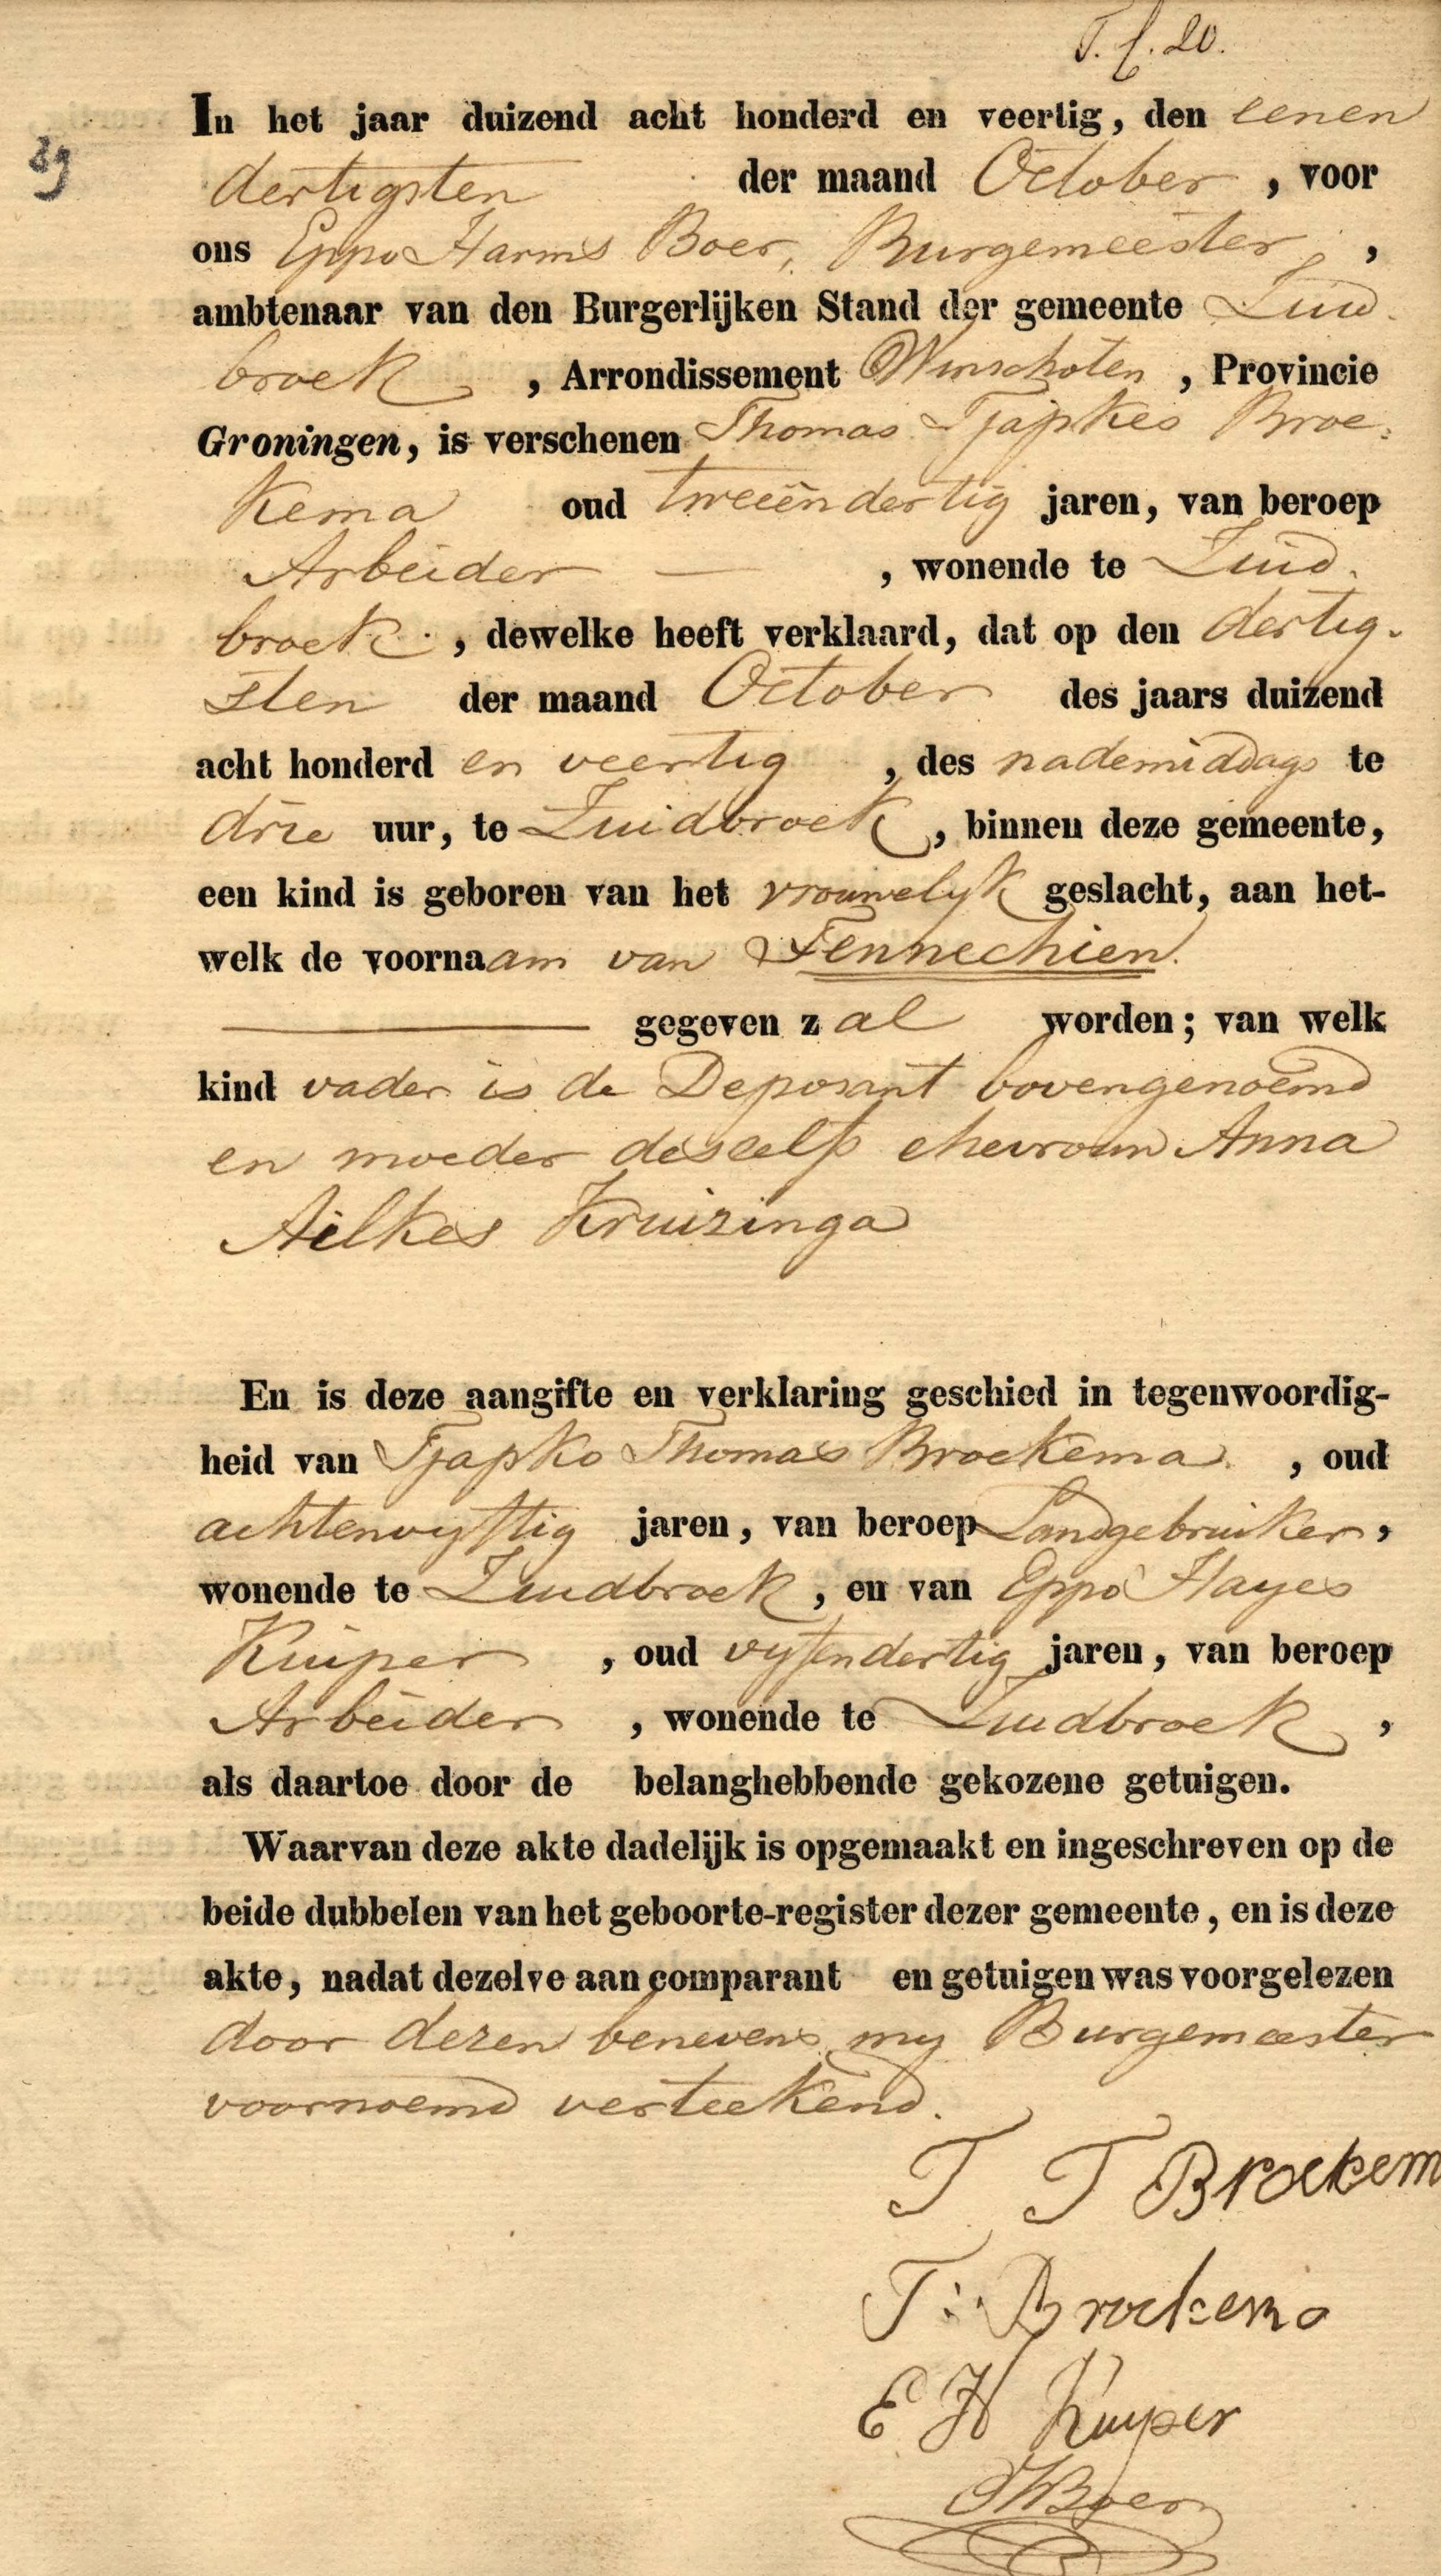 T. f. 20.
In het jaar duizend acht honderd en veertig, den eenen
29
dertigsten der maand October, voor
ons Eppo Harms Boer, Burgemeester,
ambtenaar van den Burgerlijken Stand der gemeente Zuid-
broek, Arrondissement Winschoten, Provincie
Groningen, is verschenen Thomas Tjapkes Broe-
kema oud tweeëndertig jaren, van beroep
Arbeider —, wonende te Zuid-
broek, dewelke heeft verklaard, dat op den dertig-
sten der maand October des jaars duizend
acht honderd en veertig, des nademiddags te
drie uur, te Zuidbroek, binnen deze gemeente,
een kind is geboren van het vrouwelyk geslacht, aan het-
welk de voornaam van Fennechien.
gegeven zal worden; van welk
kind vader is de Deposant bovengenoemd
en moeder deszelfs ehevrouw Anna
Ailkes Kruizinga
En is deze aangifte en verklaring geschied in tegenwoordig-
heid van Tjapko Thomas Broekema, oud
achtenvyftig jaren, van beroep Landgebruiker,
wonende te Zuidbroek, en van Eppo Hayes
Kuiper, oud vyfendertig jaren, van beroep
Arbeider, wonende te Zuidbroek,
als daartoe door de belanghebbende gekozene getuigen.
Waarvan deze akte dadelijk is opgemaakt en ingeschreven op de
beide dubbelen van het geboorte-register dezer gemeente, en is deze
akte, nadat dezelve aan comparant en getuigen was voorgelezen
door dezen benevens my Burgemeester
voornoemd verteekend.
T T Broekem
T: Broekema
E H Kuyper
EHBoer